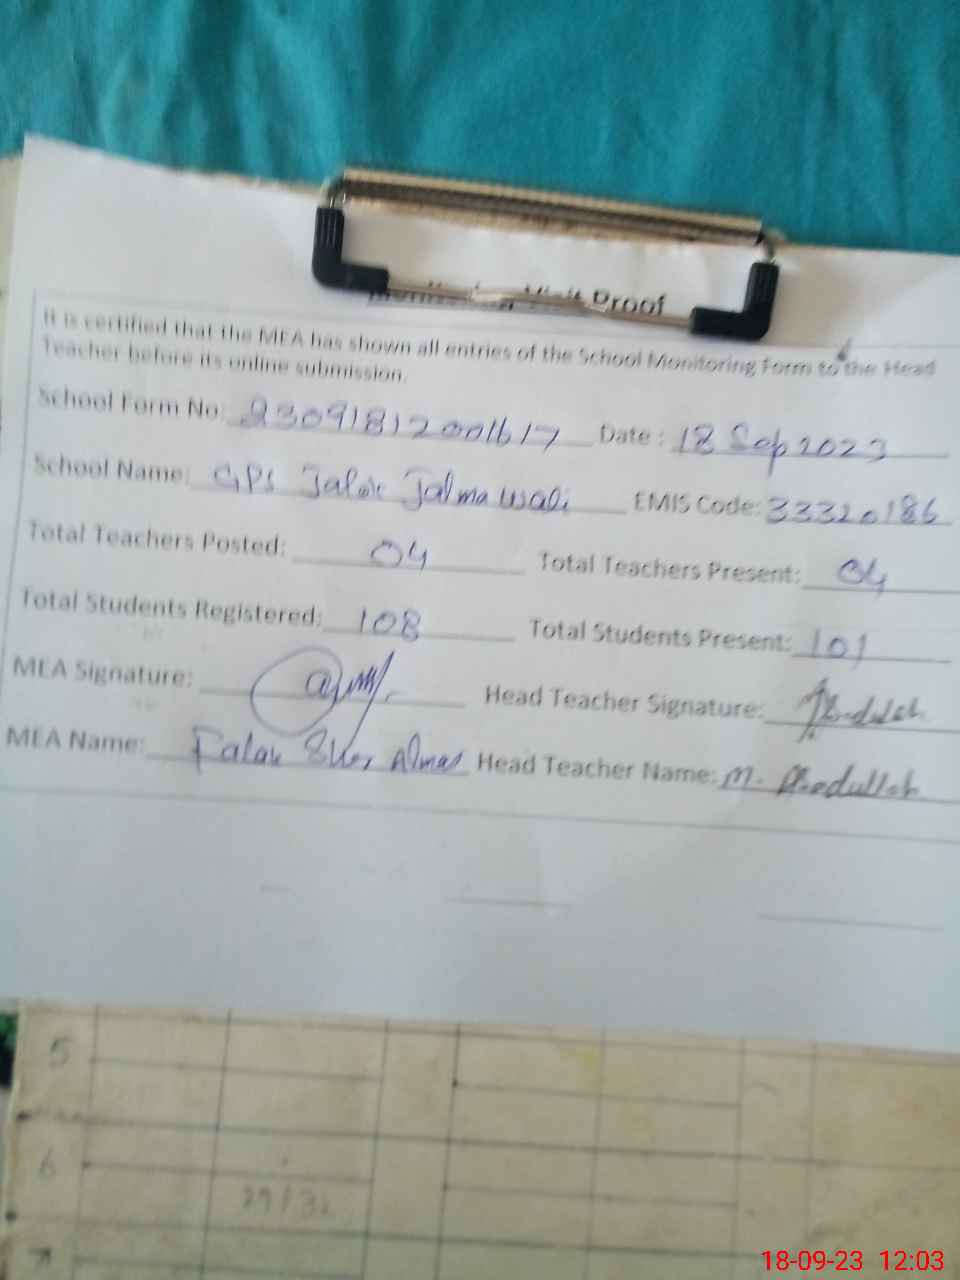 Visit Proof
It is certified that the MEA has shown all entries of the School Monitoring Form to the Head
Teacher before its online submission.
School Form No: 23091812001617 Date: 18 Sep 2023
School Name: GPS Jalma wali EMIS Code: 33320186
Total Teachers Posted: 04 Total Teachers Present: 04
Total Students Registered: 108 Total Students Present: 101
MEA Signature: Head Teacher Signature:
MEA Name: Falak Sher Almas Head Teacher Name: M. Abedullah
5
6
29/32
7
18-09-23 12:03